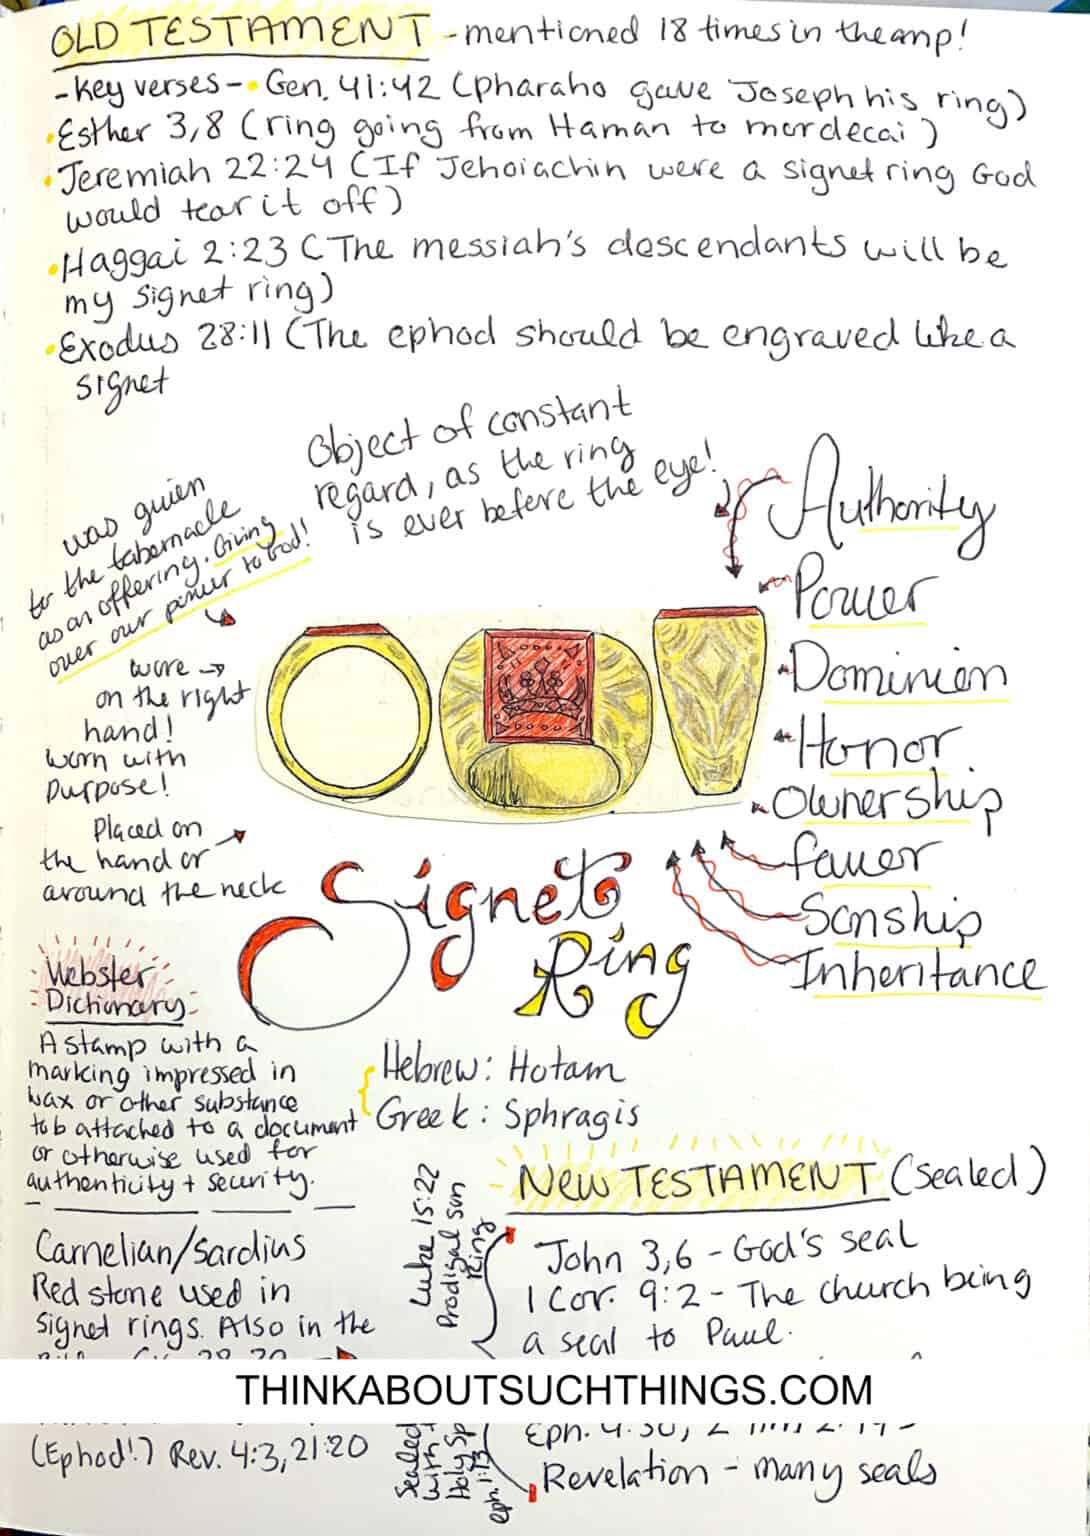 OLD TESTAMENT - mentioned 18 times in the amp!
- Key verses - • Gen. 41:42 (pharaho gave Joseph his ring)
• Esther 3,8 (ring going from Haman to mordecai)
• Jeremiah 22:24 (If Jehoiachin were a signet ring God
would tear it off)
• Haggai 2:23 (The messiah's descendants will be
my signet ring)
• Exodus 28:11 (The ephod should be engraved like a
signet
Object of constant
regard, as the ring
is ever before the eye!
was guien
to the tabernacle
as an offering. Giving
over our power to God!
wore →
on the right
hand!
worn with
purpose!
Placed on
the hand or
around the neck
Authority
Power
Dominion
Honor
Ownership
favor
Sonship
Inheritance
Signet
Ring
Webster
Dictionary
A stamp with a
marking impressed in
wax or other substance
to b attached to a document
or otherwise used for
authenticity + security.
Hebrew: Hotam
Greek: Sphragis
Carnelian/Sardius
Red stone used in
signet rings. Also in the
(Ephod!) Rev. 4:3, 21:20
Luke 15:22
Prodigal son
Ring
NEW TESTAMENT (sealed)
John 3,6 - God's seal
1 Cor. 9:2 - The church being
a seal to Paul.
THINKABOUTSUCHTHINGS.COM
Sealed
with
Holy Sp
eph. 1:13
Eph. 4:30,
Revelation - many seals